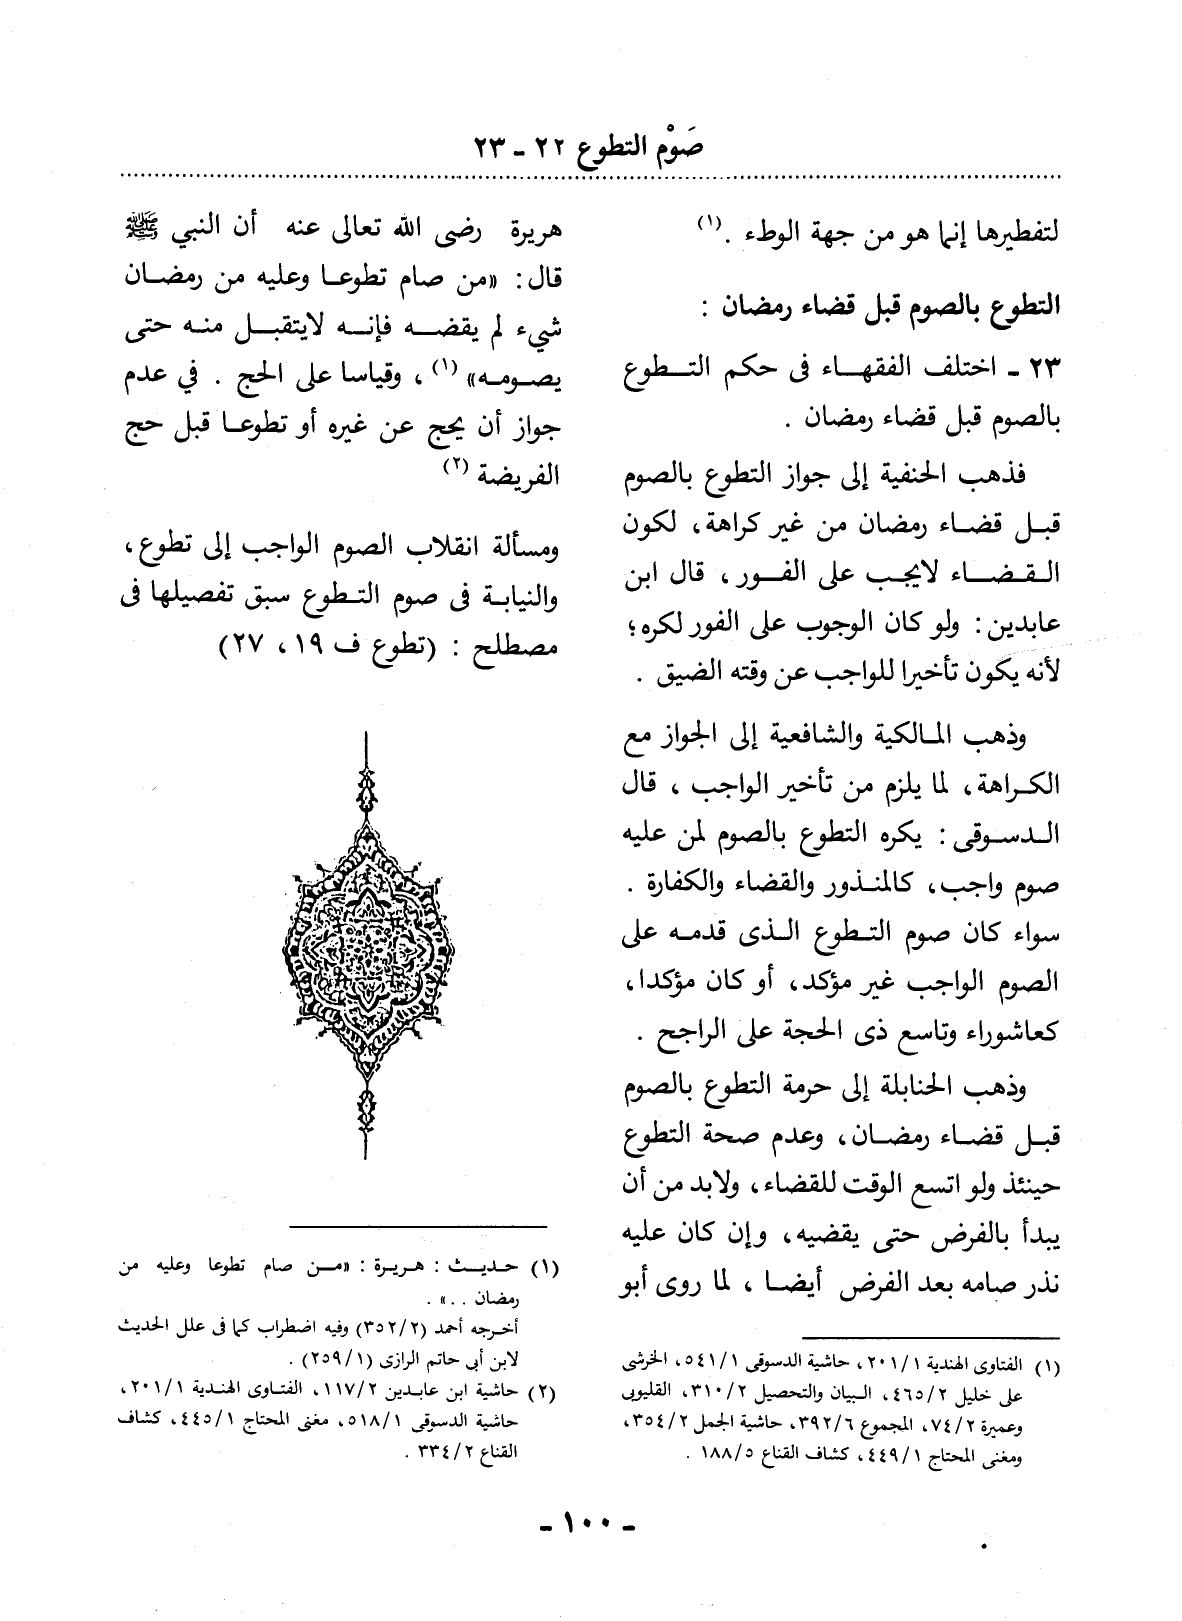 صَوْم التطوع ٢٢ - ٢٣
لتفطيرها إنما هو من جهة الوطء . (١)
التطوع بالصوم قبل قضاء رمضان :
٢٣ - اختلف الفقهاء فى حكم التطوع
بالصوم قبل قضاء رمضان .
فذهب الحنفية إلى جواز التطوع بالصوم
قبل قضاء رمضان من غير كراهة، لكون
القضاء لايجب على الفور، قال ابن
عابدين: ولو كان الوجوب على الفور لكره؛
لأنه يكون تأخيرا للواجب عن وقته الضيق .
وذهب المالكية والشافعية إلى الجواز مع
الكراهة، لما يلزم من تأخير الواجب ، قال
الدسوقى: يكره التطوع بالصوم لمن عليه
صوم واجب، كالمنذور والقضاء والكفارة .
سواء كان صوم التطوع الذى قدمه على
الصوم الواجب غير مؤكد، أو كان مؤكدا،
كعاشوراء وتاسع ذى الحجة على الراجح .
وذهب الحنابلة إلى حرمة التطوع بالصوم
قبل قضاء رمضان، وعدم صحة التطوع
حينئذ ولو اتسع الوقت للقضاء، ولابد من أن
يبدأ بالفرض حتى يقضيه، وإن كان عليه
نذر صامه بعد الفرض أيضا ، لما روى أبو
(١) الفتاوى الهندية ٢٠١/١، حاشية الدسوقى ٥٤١/١، الخرشى
على خليل ٤٦٥/٢، البيان والتحصيل ٣١٠/٢، القليوبى
وعميرة ٧٤/٢، المجموع ٣٩٢/٦، حاشية الجمل ٣٥٤/٢،
ومغنى المحتاج ٤٤٩/١، كشاف القناع ١٨٨/٥ .
هريرة رضى الله تعالى عنه أن النبي ﷺ
قال: «من صام تطوعا وعليه من رمضان
شيء لم يقضه فإنه لايتقبل منه حتى
يصومه» (١)، وقياسا على الحج . في عدم
جواز أن يحج عن غيره أو تطوعا قبل حج
الفريضة (٢)
ومسألة انقلاب الصوم الواجب إلى تطوع،
والنيابة فى صوم التطوع سبق تفصيلها فى
مصطلح : (تطوع ف ١٩، ٢٧)
(١) حديث : هريرة : «من صام تطوعا وعليه من
رمضان . .» .
أخرجه أحمد (٣٥٢/٢) وفيه اضطراب كما فى علل الحديث
لابن أبى حاتم الرازى (٢٥٩/١) .
(٢) حاشية ابن عابدين ١١٧/٢، الفتاوى الهندية ٢٠١/١،
حاشية الدسوقى ٥١٨/١، مغنى المحتاج ٤٤٥/١، كشاف
القناع ٣٣٤/٢ .
- ١٠٠ -